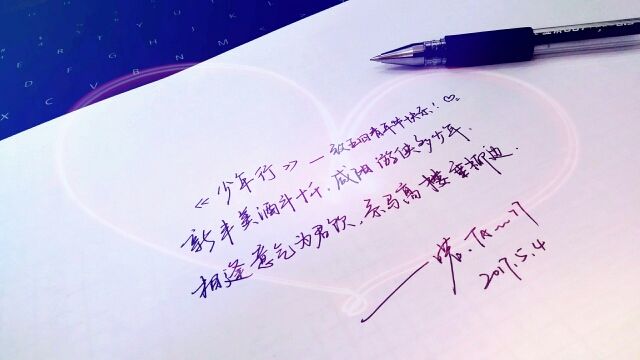 《少年行》— 致五四青年节快乐!♡
新丰美酒斗十千,咸阳游侠多少年.
相逢意气为君饮,系马高楼垂柳边.
2017.5.4